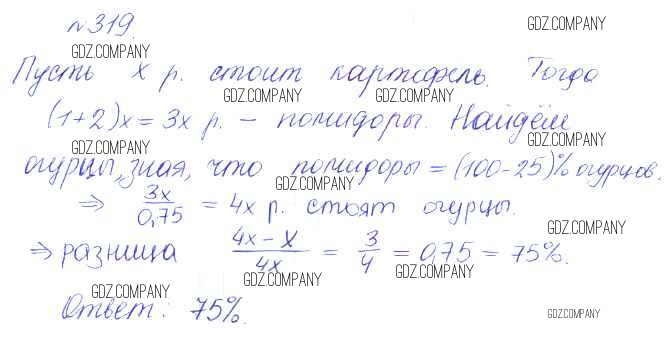 №319.
GDZ.COMPANY
GDZ.COMPANY
GDZ.COMPANY
Пусть x р. стоит картофель. Тогда
GDZ.COMPANY
GDZ.COMPANY
(1+2)x = 3x р. – помидоры. Найдём
GDZ.COMPANY
GDZ.COMPANY
огурцы, зная, что помидоры = (100-25)% огурцов.
GDZ.COMPANY
⇒ 3x/0,75 = 4x р. стоят огурцы.
GDZ.COMPANY
⇒ разница (4x – x)/4x = 3/4 = 0,75 = 75%.
GDZ.COMPANY
GDZ.COMPANY
GDZ.COMPANY
Ответ: 75%.
GDZ.COMPANY